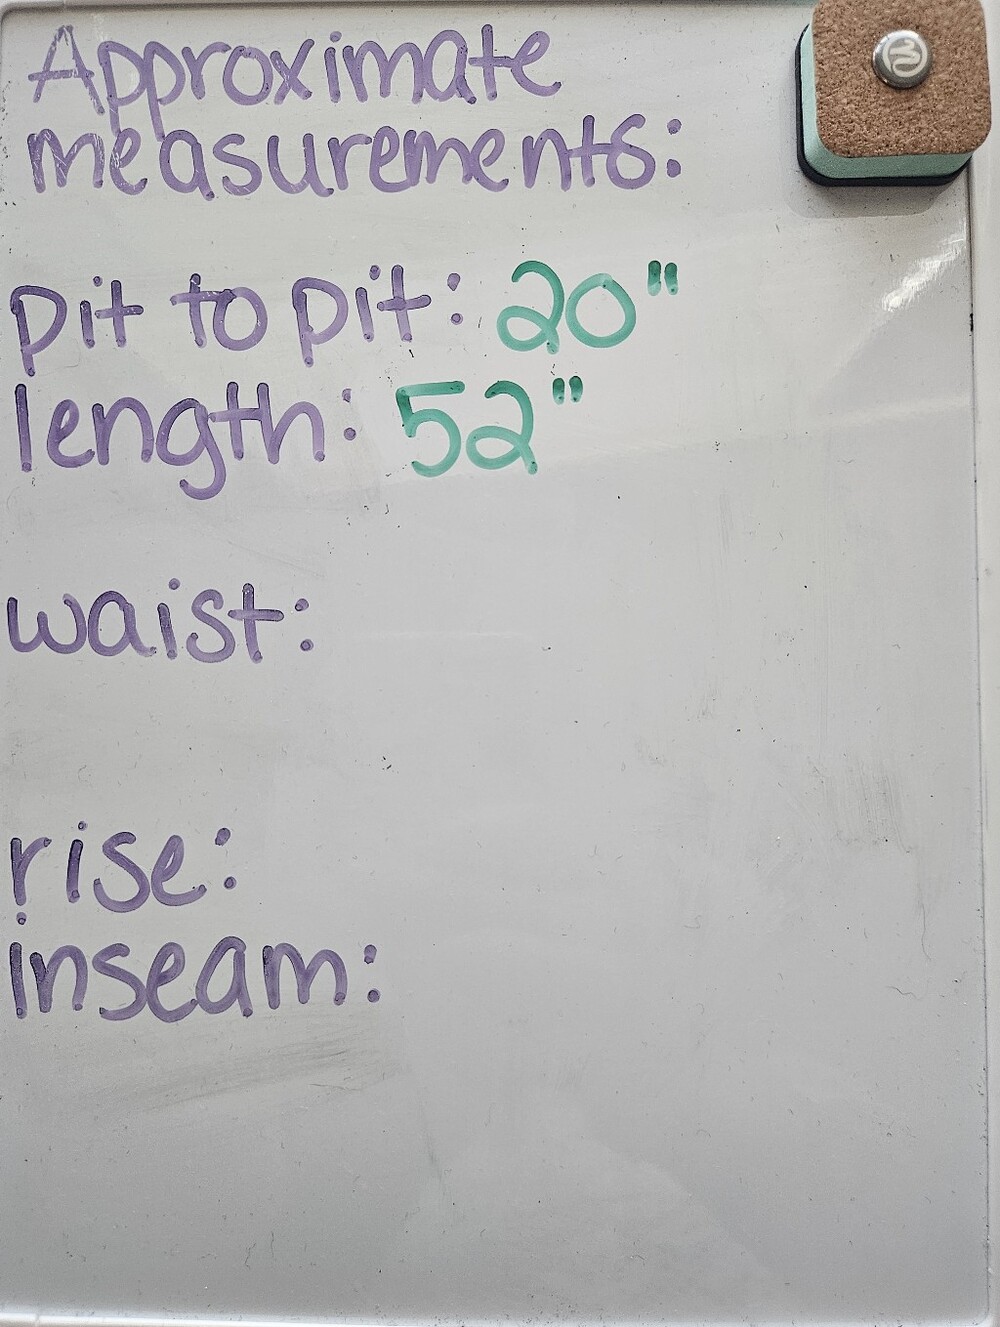 Approximate
measurements:
pit to pit: 20"
length: 52"
waist:
rise:
inseam: